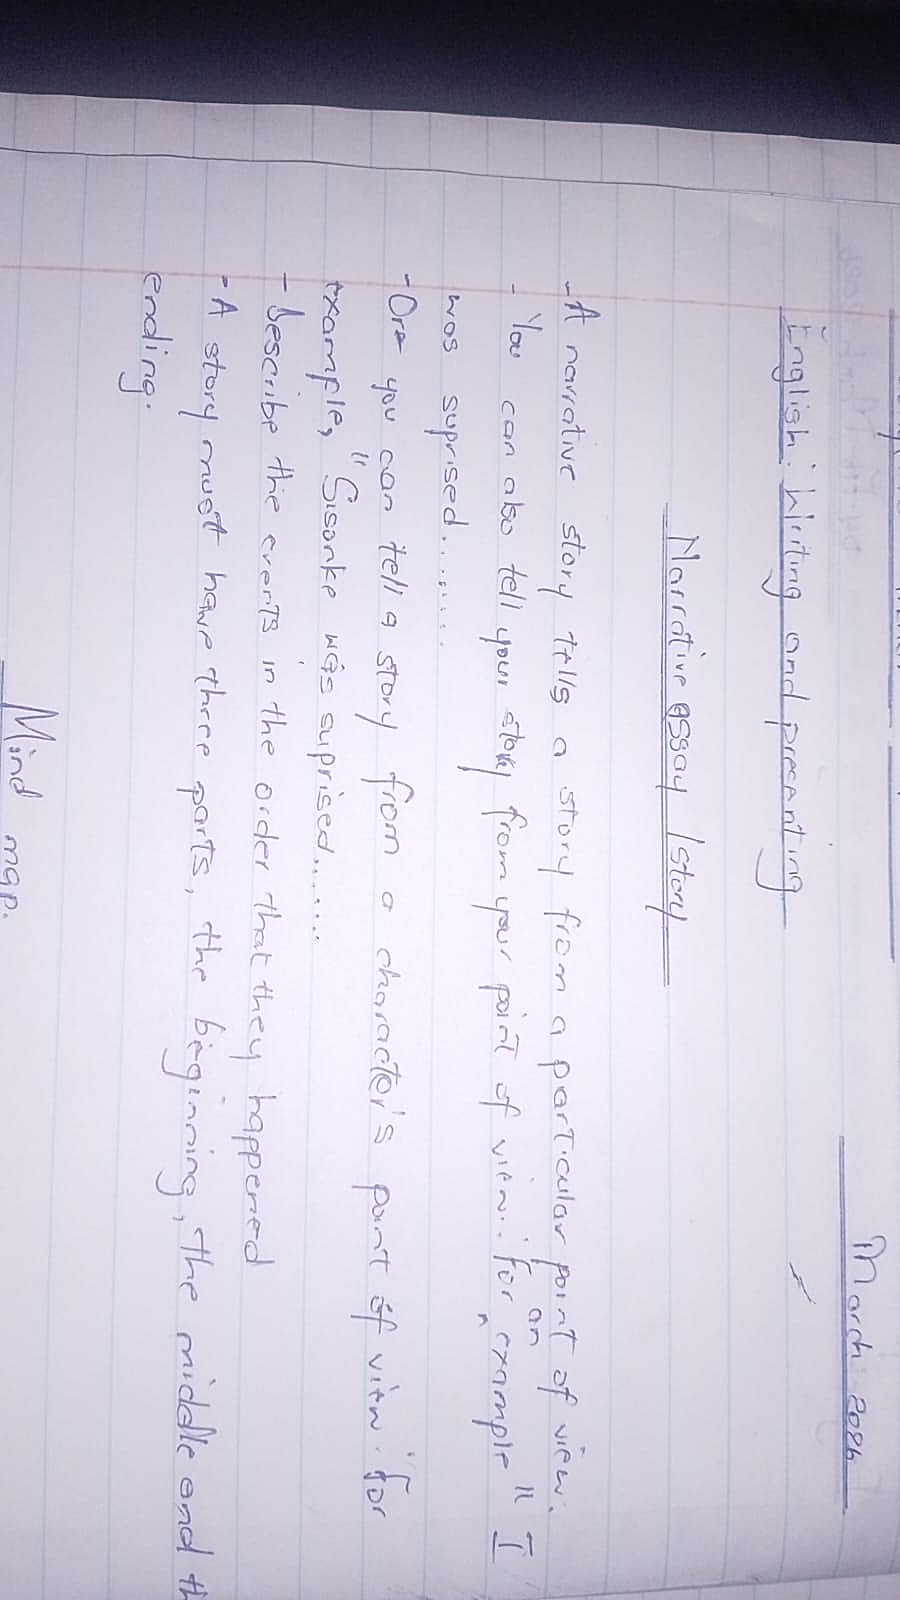 March 2026
English: Writing and precanting
Narrative essay / story
- A narrative story tells a story from a particular point of view.
- You can also tell your story from your point of view. For an example " I
was suprised.......
- Or you can tell a story from a character's point of view. For
example, "Sisonke was suprised......
- Describe the events in the order that they happened
- A story must have three parts, the beginning, the middle and th
ending.
Mind map.